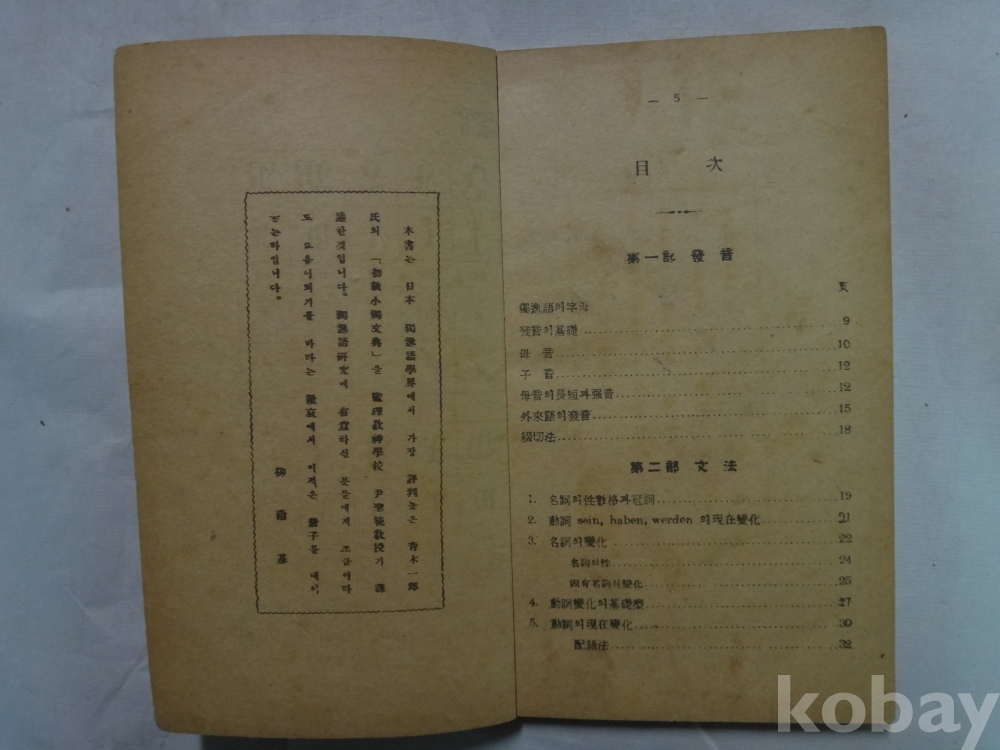 本書는 日本 獨逸語學界에서 가장 評判높은 青木一郎
氏의 「初級小獨文典」을 監理敎神學校 尹聖範敎授가 譯
述한것입니다. 獨逸語硏究에 有意하신 분들에게 조금이라
도 도움이되기를 바라는 에서 이적은 冊子를 내이
는바입니다。
柳
— 5 —
目 次
第一部 發音
頁
獨逸語의字母 9
發音의基礎 10
母音 12
子音 12
母音의長短과强音 15
外來語의發音 18
綴切法
第二部 文法
1. 名詞의性數格과冠詞 19
2. 動詞 sein, haben, werden 의現在變化 21
3. 名詞의變化 22
名詞의性 24
固有名詞의變化 25
4. 動詞變化의基礎型 27
5. 動詞의現在變化 30
配語法 32
kobay